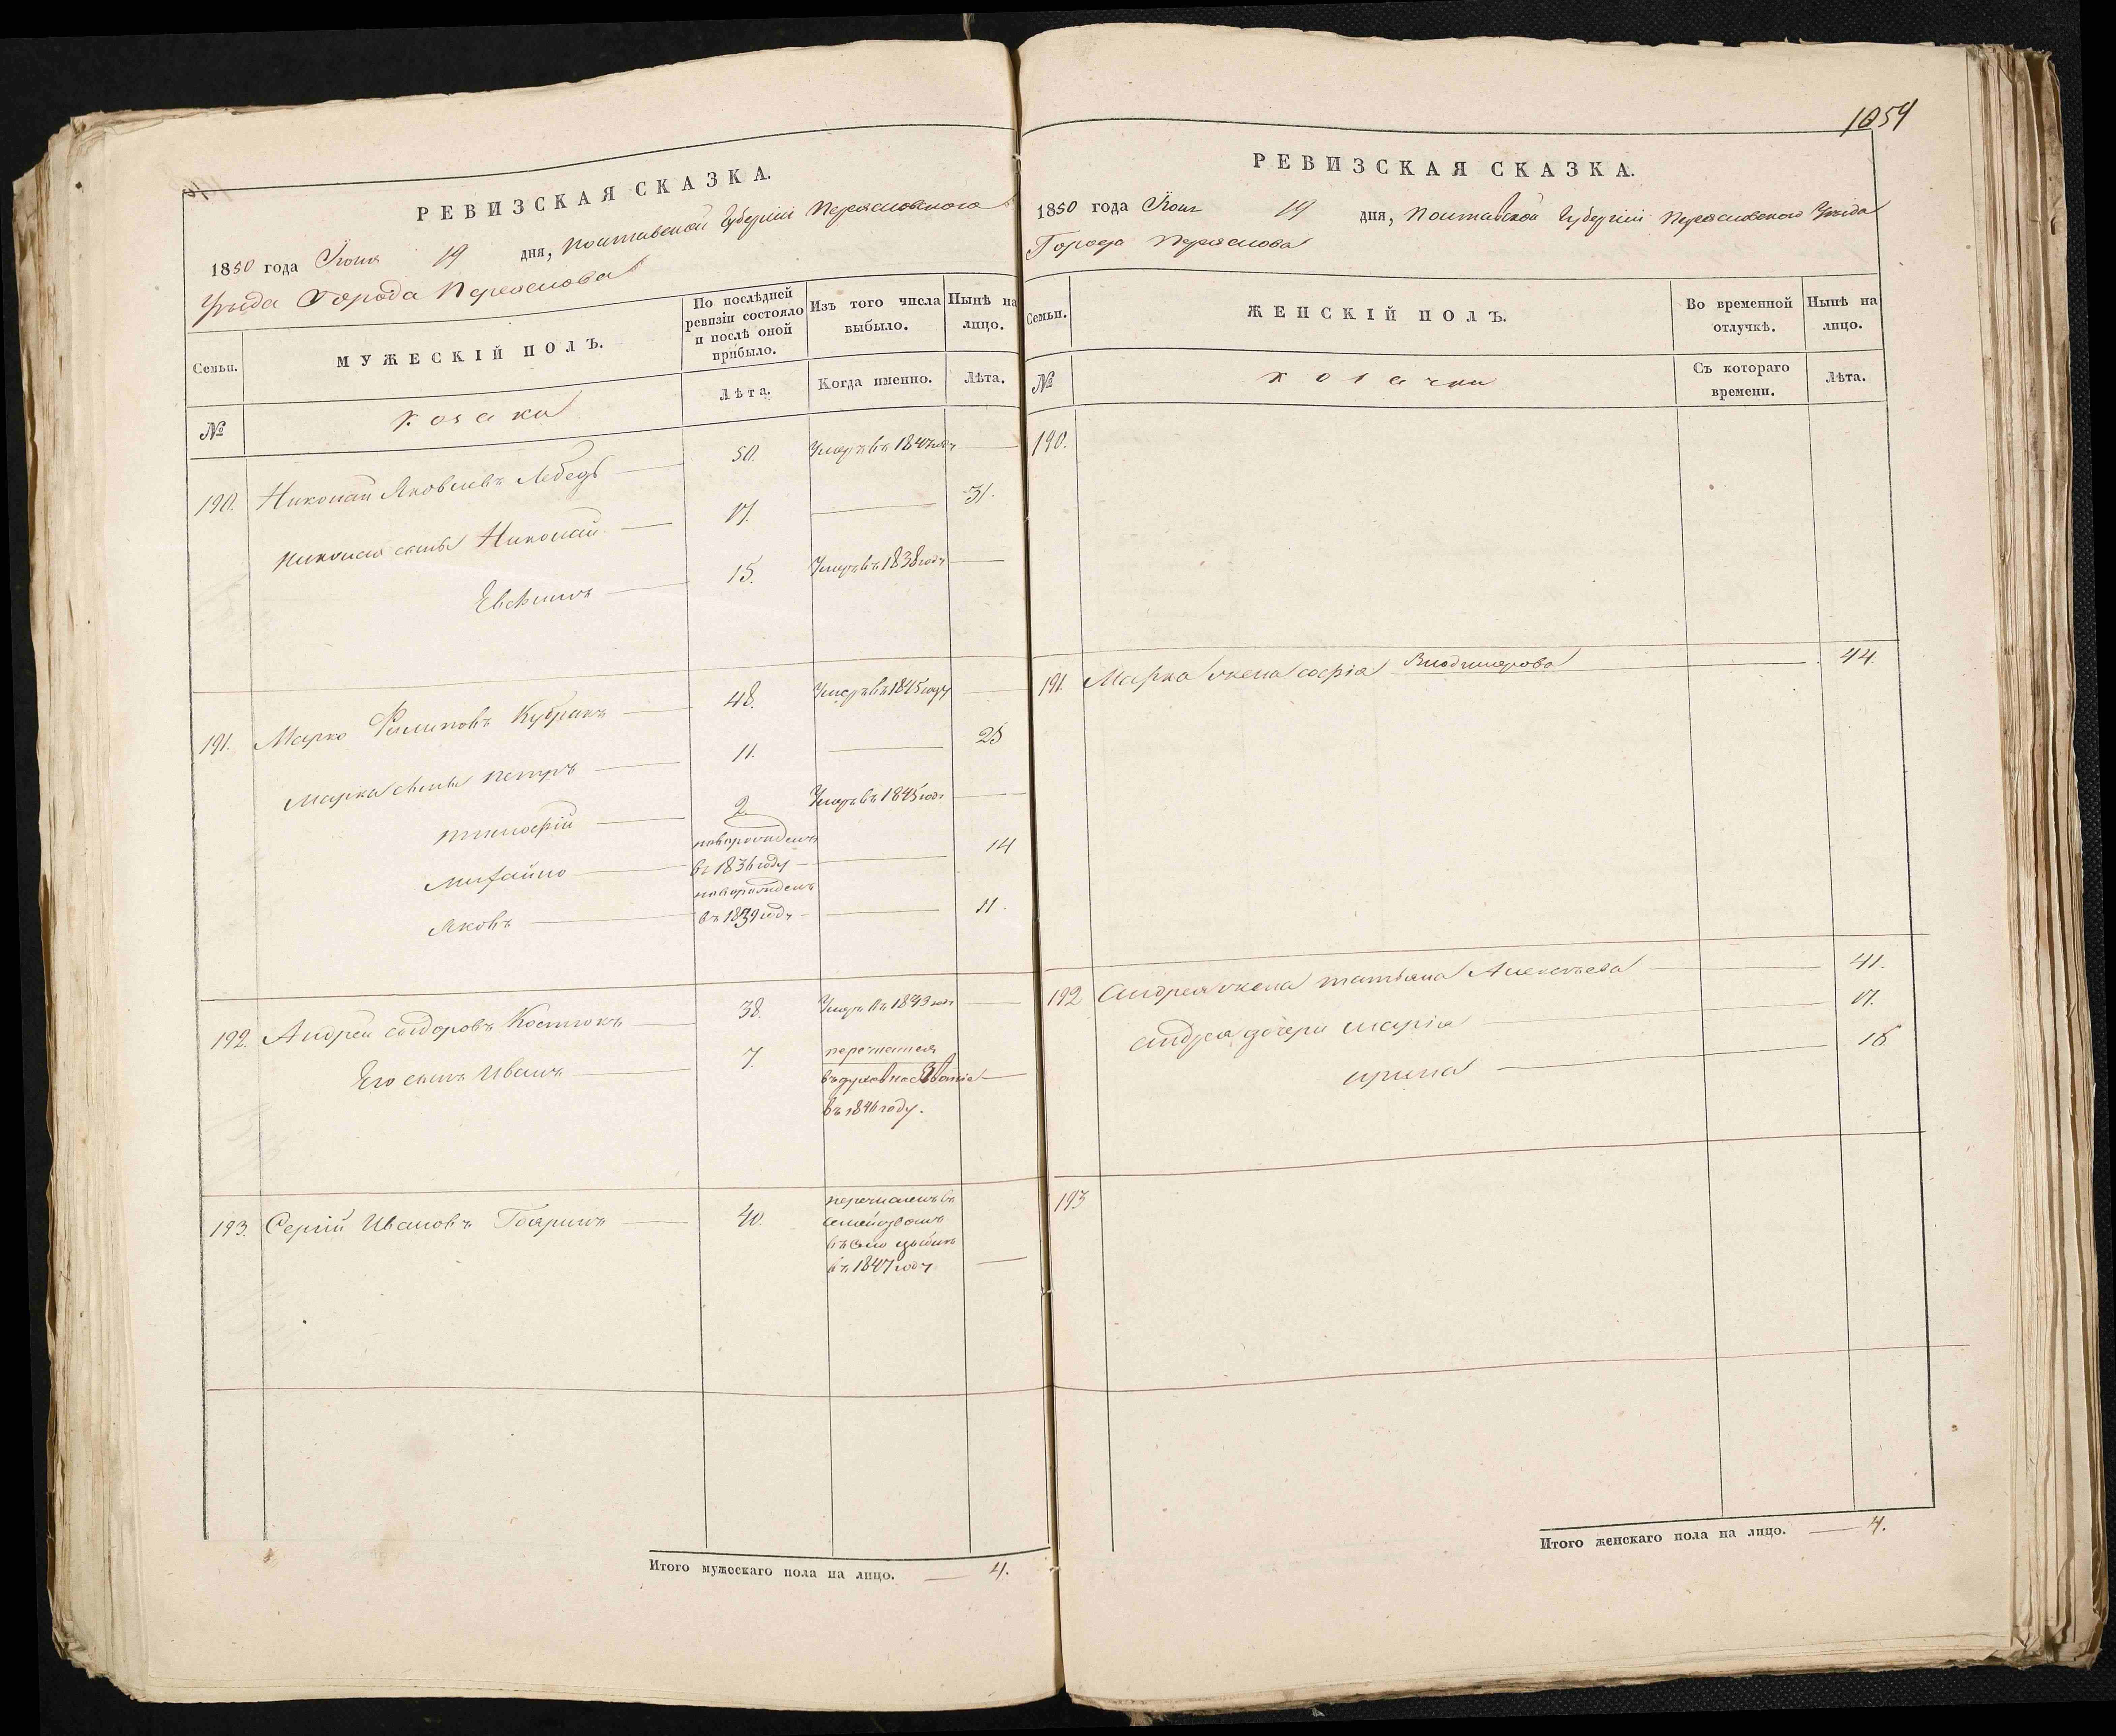 РЕВИЗСКАЯ СКАЗКА.
1850 года Іюня 19 дня, Полтавской Губерніи Переяславского
Уезда Города Переяслова
Семьи.
МУЖЕСКІЙ ПОЛЪ.
По послѣдней ревизіи состояло и послѣ оной прибыло.
Изъ того числа выбыло.
Нынѣ на лицо.
№
Козаки
Лѣта.
Когда именно.
Лѣта.
190. Николай Яковлевъ Лебедь 50. Умеръ въ 1847 годѣ
Николая сыны Николай 17. 31.
Евфимъ 15. Умеръ въ 1838 годѣ
191. Марко Филиповъ Кубракъ 48. Умеръ въ 1845 году
Марка сыны Петръ 11. 25
Тимофій 2. Умеръ въ 1845 годѣ
Михайло новорожденъ въ 1836 году 14
Яковъ новорожденъ въ 1839 годѣ 11.
192. Андрей Сидоровъ Костюкъ 38. Умеръ въ 1843 годѣ
Его сынъ Иванъ 7. перечисленъ
въ духовное Званіе
въ 1846 году.
193. Сергій Ивановъ Гояринъ 40. перечисленъ съ
семействомъ
въ
въ 1847 годѣ
Итого мужескаго пола на лицо. 4.
1054
РЕВИЗСКАЯ СКАЗКА.
1850 года Іюня 19 дня, Полтавской Губерніи Переясловского Уезда
Города Переяслова
Семьи.
ЖЕНСКІЙ ПОЛЪ.
Во временной отлучкѣ.
Нынѣ на лицо.
№
Козачки
Съ котораго времени.
Лѣта.
190.
191. Марка жена Софія Владимерова 44.
192 Андрея жена Татьяна Алексѣева 41.
Андрея дочери Марія 17.
Ирина 16.
193
Итого женскаго пола на лицо. 4.